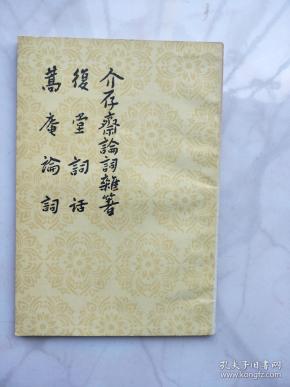 介存齋論詞雜著
復堂詞話
蒿庵論詞
孔夫子旧书网